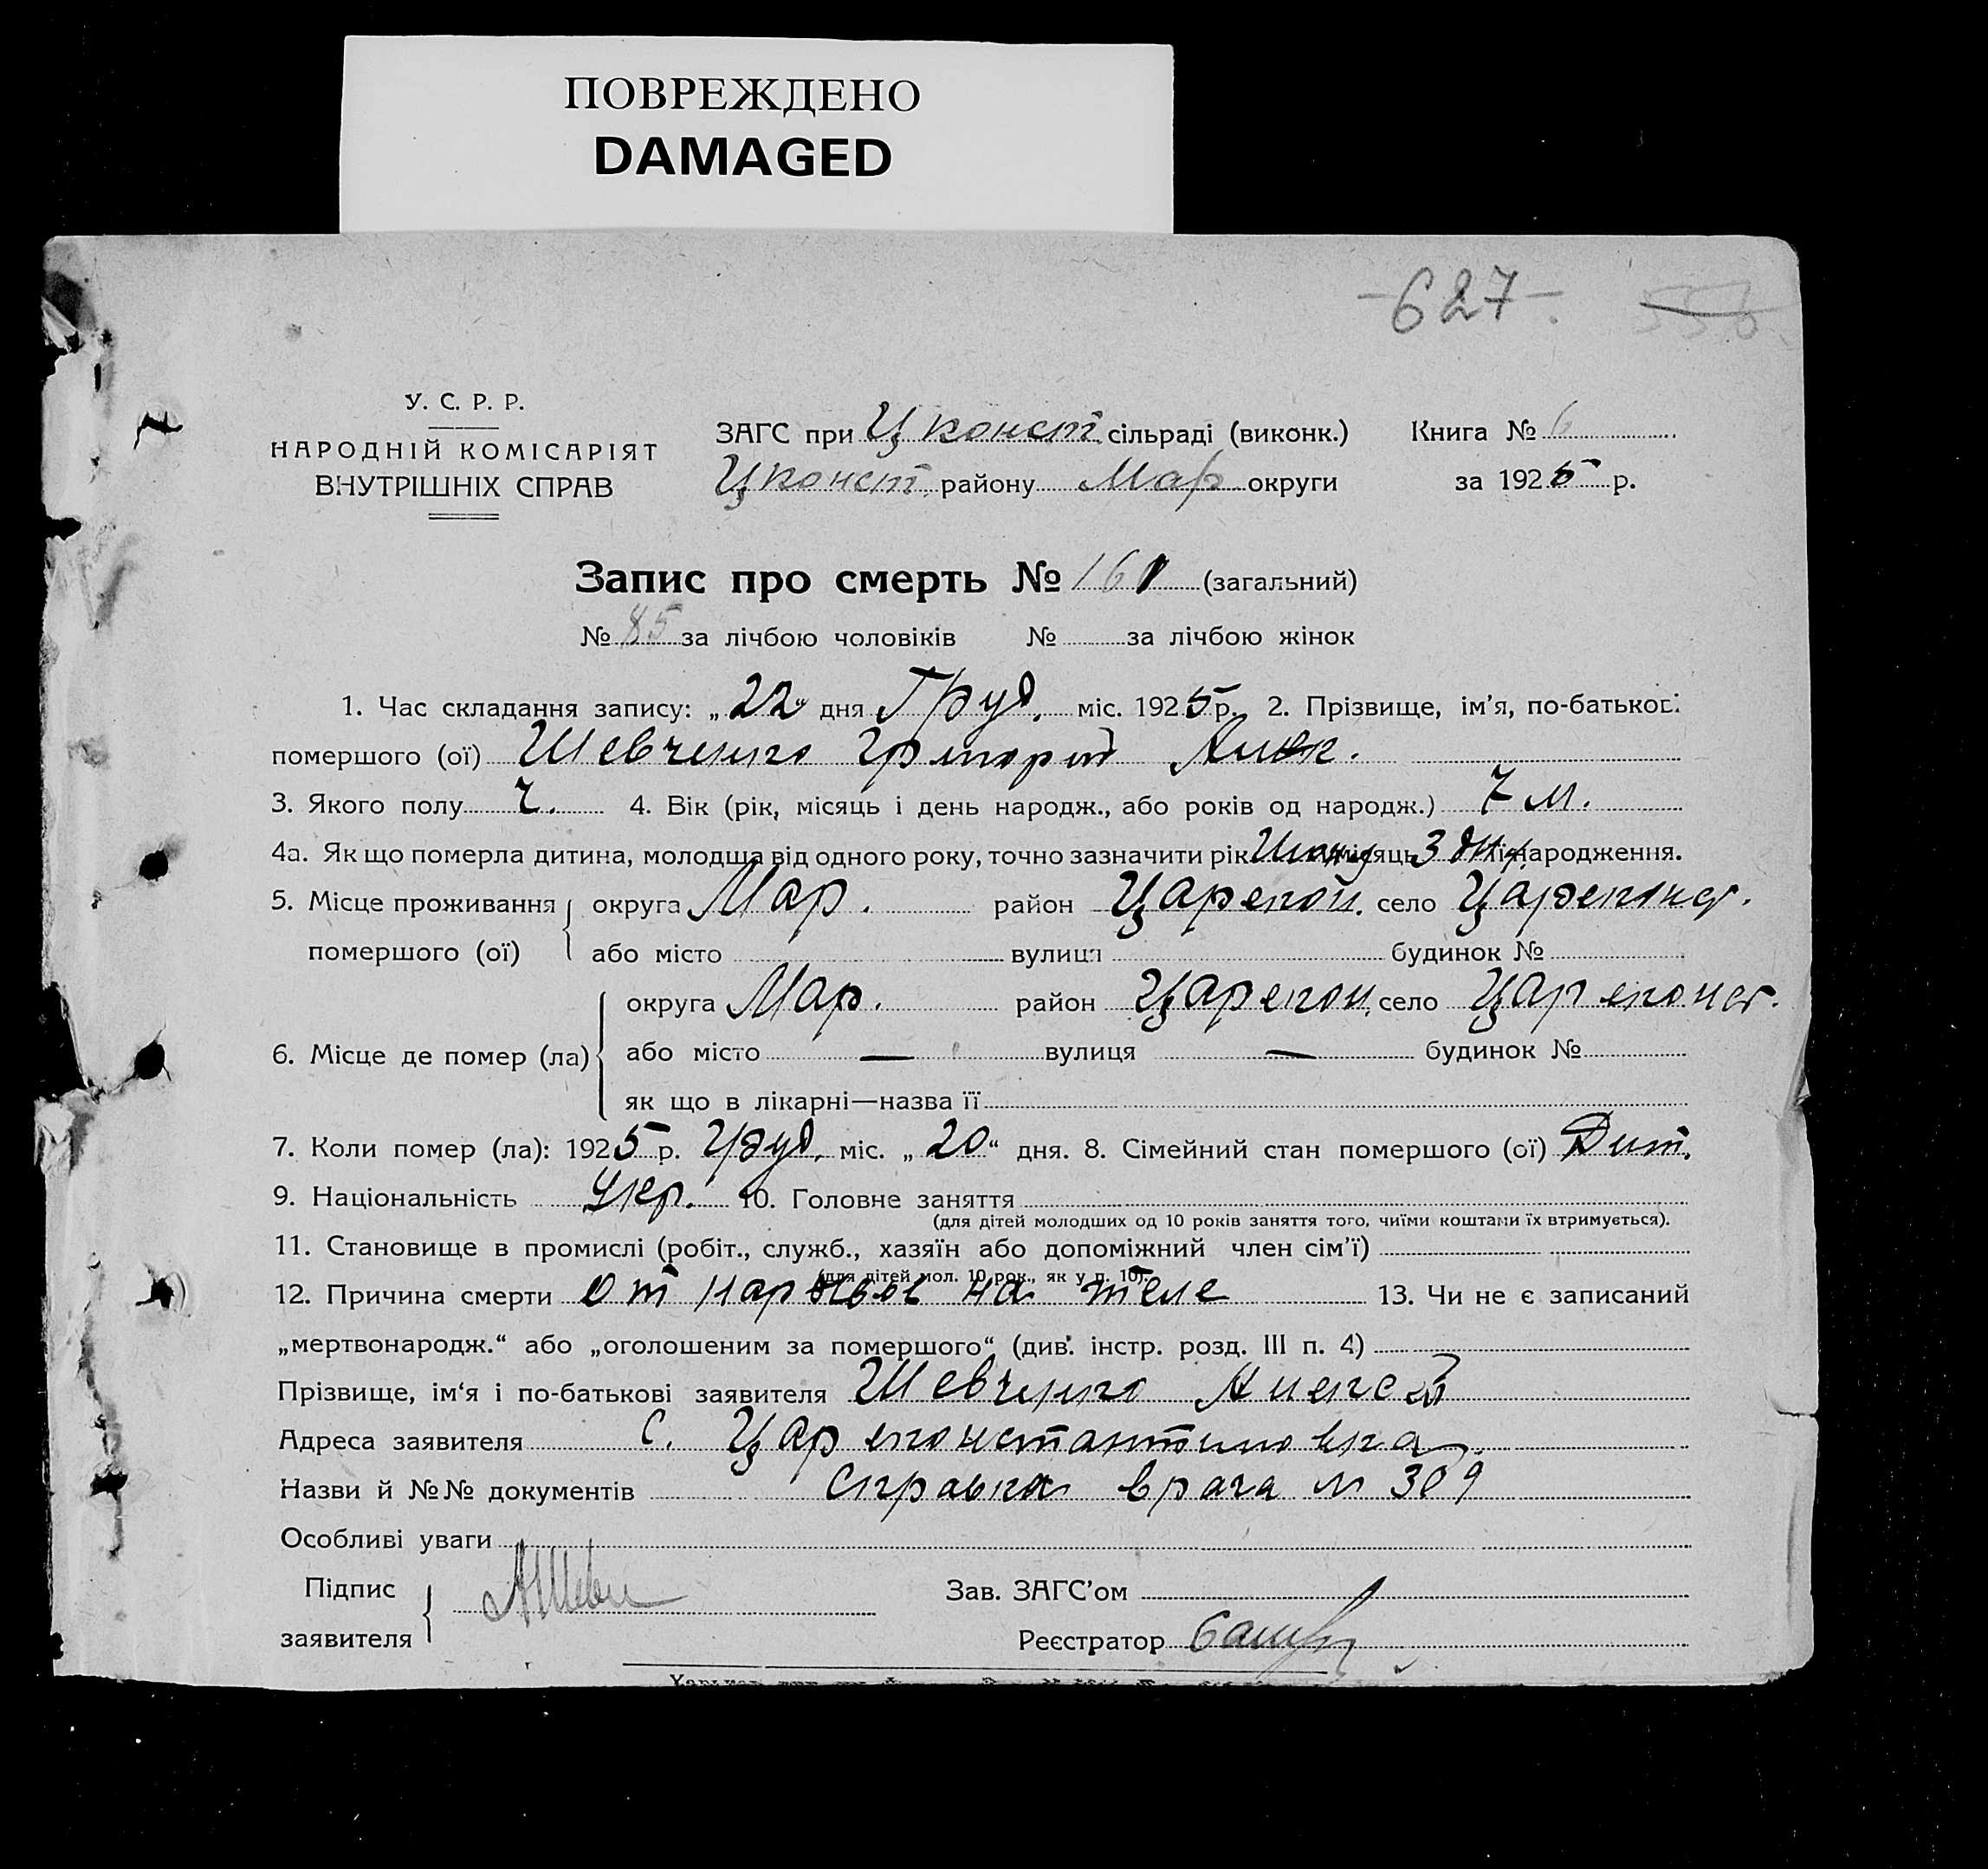 ПОВРЕЖДЕНО
DAMAGED
-627-.
У. С. Р. Р.
НАРОДНІЙ КОМІСАРІЯТ
ВНУТРІШНІХ СПРАВ
ЗАГС при Ц конст. сільраді (виконк.) Книга № 6
Цконст. району Мар округи за 1925 р.
Запис про смерть № 161 (загальний)
№ 85 за лічбою чоловіків № за лічбою жінок
1. Час складання запису: „22" дня Груд. міс. 1925 р. 2. Прізвище, ім'я, по-батькові
помершого (ої) Шевченко Григорий Алек.
3. Якого полу ч. 4. Вік (рік, місяць і день народж., або років од народж.) 7 м.
4а. Як що померла дитина, молодша від одного року, точно зазначити рік місяць 3 дня народження.
5. Місце проживання округа Мар. район Царекон. село Цареконст.
помершого (ої) або місто вулиця будинок №
округа Мар. район Царекон. село Цареконст.
6. Місце де помер (ла) або місто — вулиця — будинок №
як що в лікарні—назва її
7. Коли помер (ла): 1925 р. Груд. міс. „20" дня. 8. Сімейний стан помершого (ої) Дит.
9. Національність Укр. 10. Головне заняття
(для дітей молодших од 10 років заняття того, чиїми коштами їх втримується).
11. Становище в промислі (робіт., служб., хазяїн або допоміжний член сім'ї)
(для дітей мол. 10 рок., як у п. 10).
12. Причина смерти от нарывов на теле 13. Чи не є записаний
„мертвонародж." або „оголошеним за помершого" (див. інстр. розд. III п. 4)
Прізвище, ім'я і по-батькові заявителя Шевченко Алексей
Адреса заявителя с. Цареконстантиновка.
Назви й №№ документів Справка врача № 309
Особливі уваги
Підпис
заявителя АШевч
Зав. ЗАГС'ом
Реєстратор